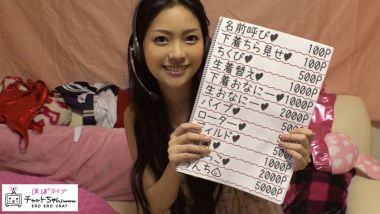 名前呼び♥ 100P
下着ちら見せ♥ 100P
ちくび♥ 500P
生着替え♥
下着おなにー♥ 1000P
生おなにー♥
バイブ♥ 2000P
ローター♥
2000P
うんち 5000P
ライブ
チャットちゃんwwww
ERO ERO CHAT